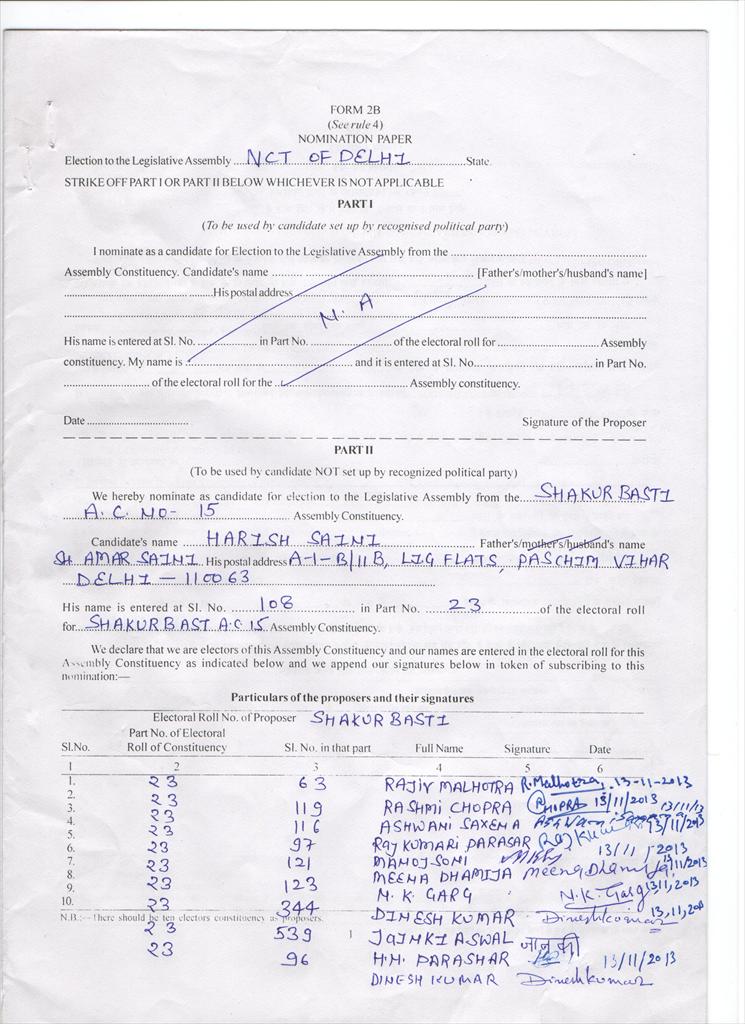 FORM 2B
(See rule 4)
NOMINATION PAPER
Election to the Legislative Assembly NCT OF DELHI State.
STRIKE OFF PART I OR PART II BELOW WHICHEVER IS NOT APPLICABLE
PART I
(To be used by candidate set up by recognised political party)
I nominate as a candidate for Election to the Legislative Assembly from the
Assembly Constituency. Candidate's name [Father's/mother's/husband's name]
His postal address
N. A
His name is entered at Sl. No. in Part No. of the electoral roll for Assembly
constituency. My name is and it is entered at Sl. No. in Part No.
of the electoral roll for the Assembly constituency.
Date Signature of the Proposer
PART II
(To be used by candidate NOT set up by recognized political party)
We hereby nominate as candidate for election to the Legislative Assembly from the SHAKUR BASTI
A. C. NO- 15 Assembly Constituency.
Candidate's name HARISH SAINI Father's/mother's/husband's name
SH AMAR SAINI His postal address A-1-B/11B, LIG FLATS, PASCHIM VIHAR
DELHI - 110063
His name is entered at Sl. No. 108 in Part No. 23 of the electoral roll
for SHAKURBAST A.C 15 Assembly Constituency.
We declare that we are electors of this Assembly Constituency and our names are entered in the electoral roll for this
Assembly Constituency as indicated below and we append our signatures below in token of subscribing to this
nomination:—
Particulars of the proposers and their signatures
Electoral Roll No. of Proposer SHAKUR BASTI
Part No. of Electoral
Sl.No. Roll of Constituency Sl. No. in that part Full Name Signature Date
1 2 3 4 5 6
1. 23 63 RAJIV MALHOTRA R. Malhotra 13-11-2013
2. 23 119 RASHMI CHOPRA CHOPRA 13/11/2013
3. 23 116 ASHWANI SAXENA 13/11/13
4. 23 97 RAJ KUMARI PARASAR 13/11/2013
5. 23 121 MANOJ SONI 13/11/2013
6. 23 123 MEENA DHAMIJA Meena Dhamija 13/11/2013
7. 23 344 N. K. GARG N.K. Garg 13,11,2013
8. 23 539 DINESH KUMAR Dineshkumar 13,11,201
9. 23 96 JAINKI ASWAL जानकी
10. 23 H.M. PARASHAR 13/11/2013
DINESH KUMAR Dineshkumar
N.B.:—There should be ten electors constituency as proposers.
1